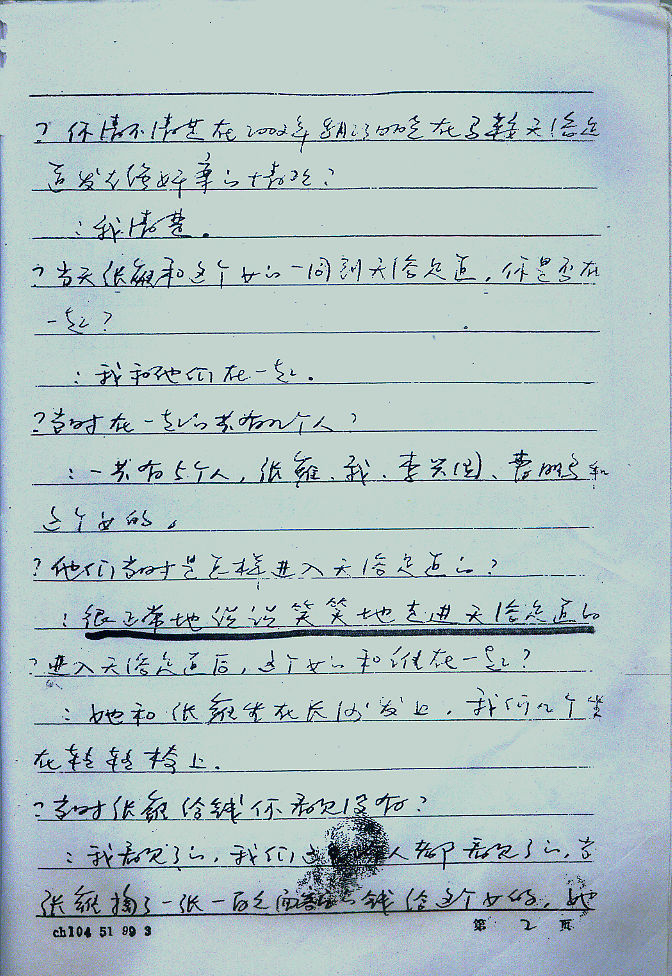 ？你清不清楚在2002年8月23日晚在马鞍天浴足
道发生强奸案的情况？
：我清楚。
？当天张龍和这个女的一同到天浴足道，你是否在
一起？
：我和他们在一起。
？当时在一起的共有几个人？
：一共有5个人，张龍、我、李兴国、曹明 和
这个女的。
？他们当时是怎样进入天浴足道的？
：很正常地说说笑笑地走进天浴足道的
？进入天浴足道后，这个女的和谁在一起？
：她和张龍坐在长沙发上，我们几个坐
在 椅上。
？当时张龍给钱你看见没有？
：我看见了的，我们 人都看见了的，当
张龍掏了一张一百元面 的钱给这个女的，她
ch104 51 99 3 第 2 页